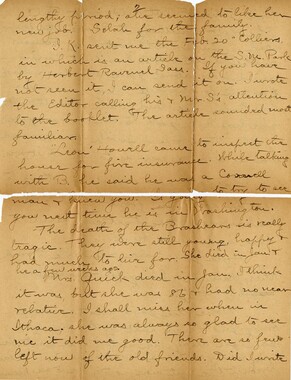 2
lengthy period; she seemed to like her
new job. Solah for the family.
I. K. sent me the Feb 20 Colliers
in which is an article on the S. M. Park
by Herbert Ravenel Sass. If you have
not seen it, I can send it on. I wrote
the Editor calling his & Mr S's attention
to the booklet. The article sounded most
familiar.
Leon Howell came to inspect the
house for fire insurance. While talking
with B. he said he was a
to try to see
man & knew you.
you next time he is in Washington.
The death of the is really
tragic. They were still young, happy &
had much to live for. She died in Jan &
he a few weeks ago.
Mrs. Quick died in Jan. I think
it was, but she was 86 & had no near
relative. I shall miss her when in
Ithaca. she was always so glad to see
me it did me good. There are so few
left now of the old friends. Did I write